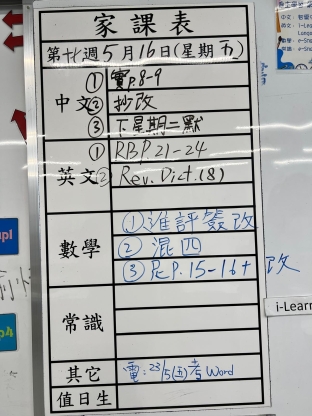 家課表
第十八週5月16日(星期五)
中文
① 實p.8-9
② 抄改
③ 下星期二默
英文
① RBP.21-24
② Rev. Dict.(8)
數學
① 進評簽改
② 混四
③ 尾P.15-16+改
常識
其它
電:23/5(五)考Word
值日生
i-Learn